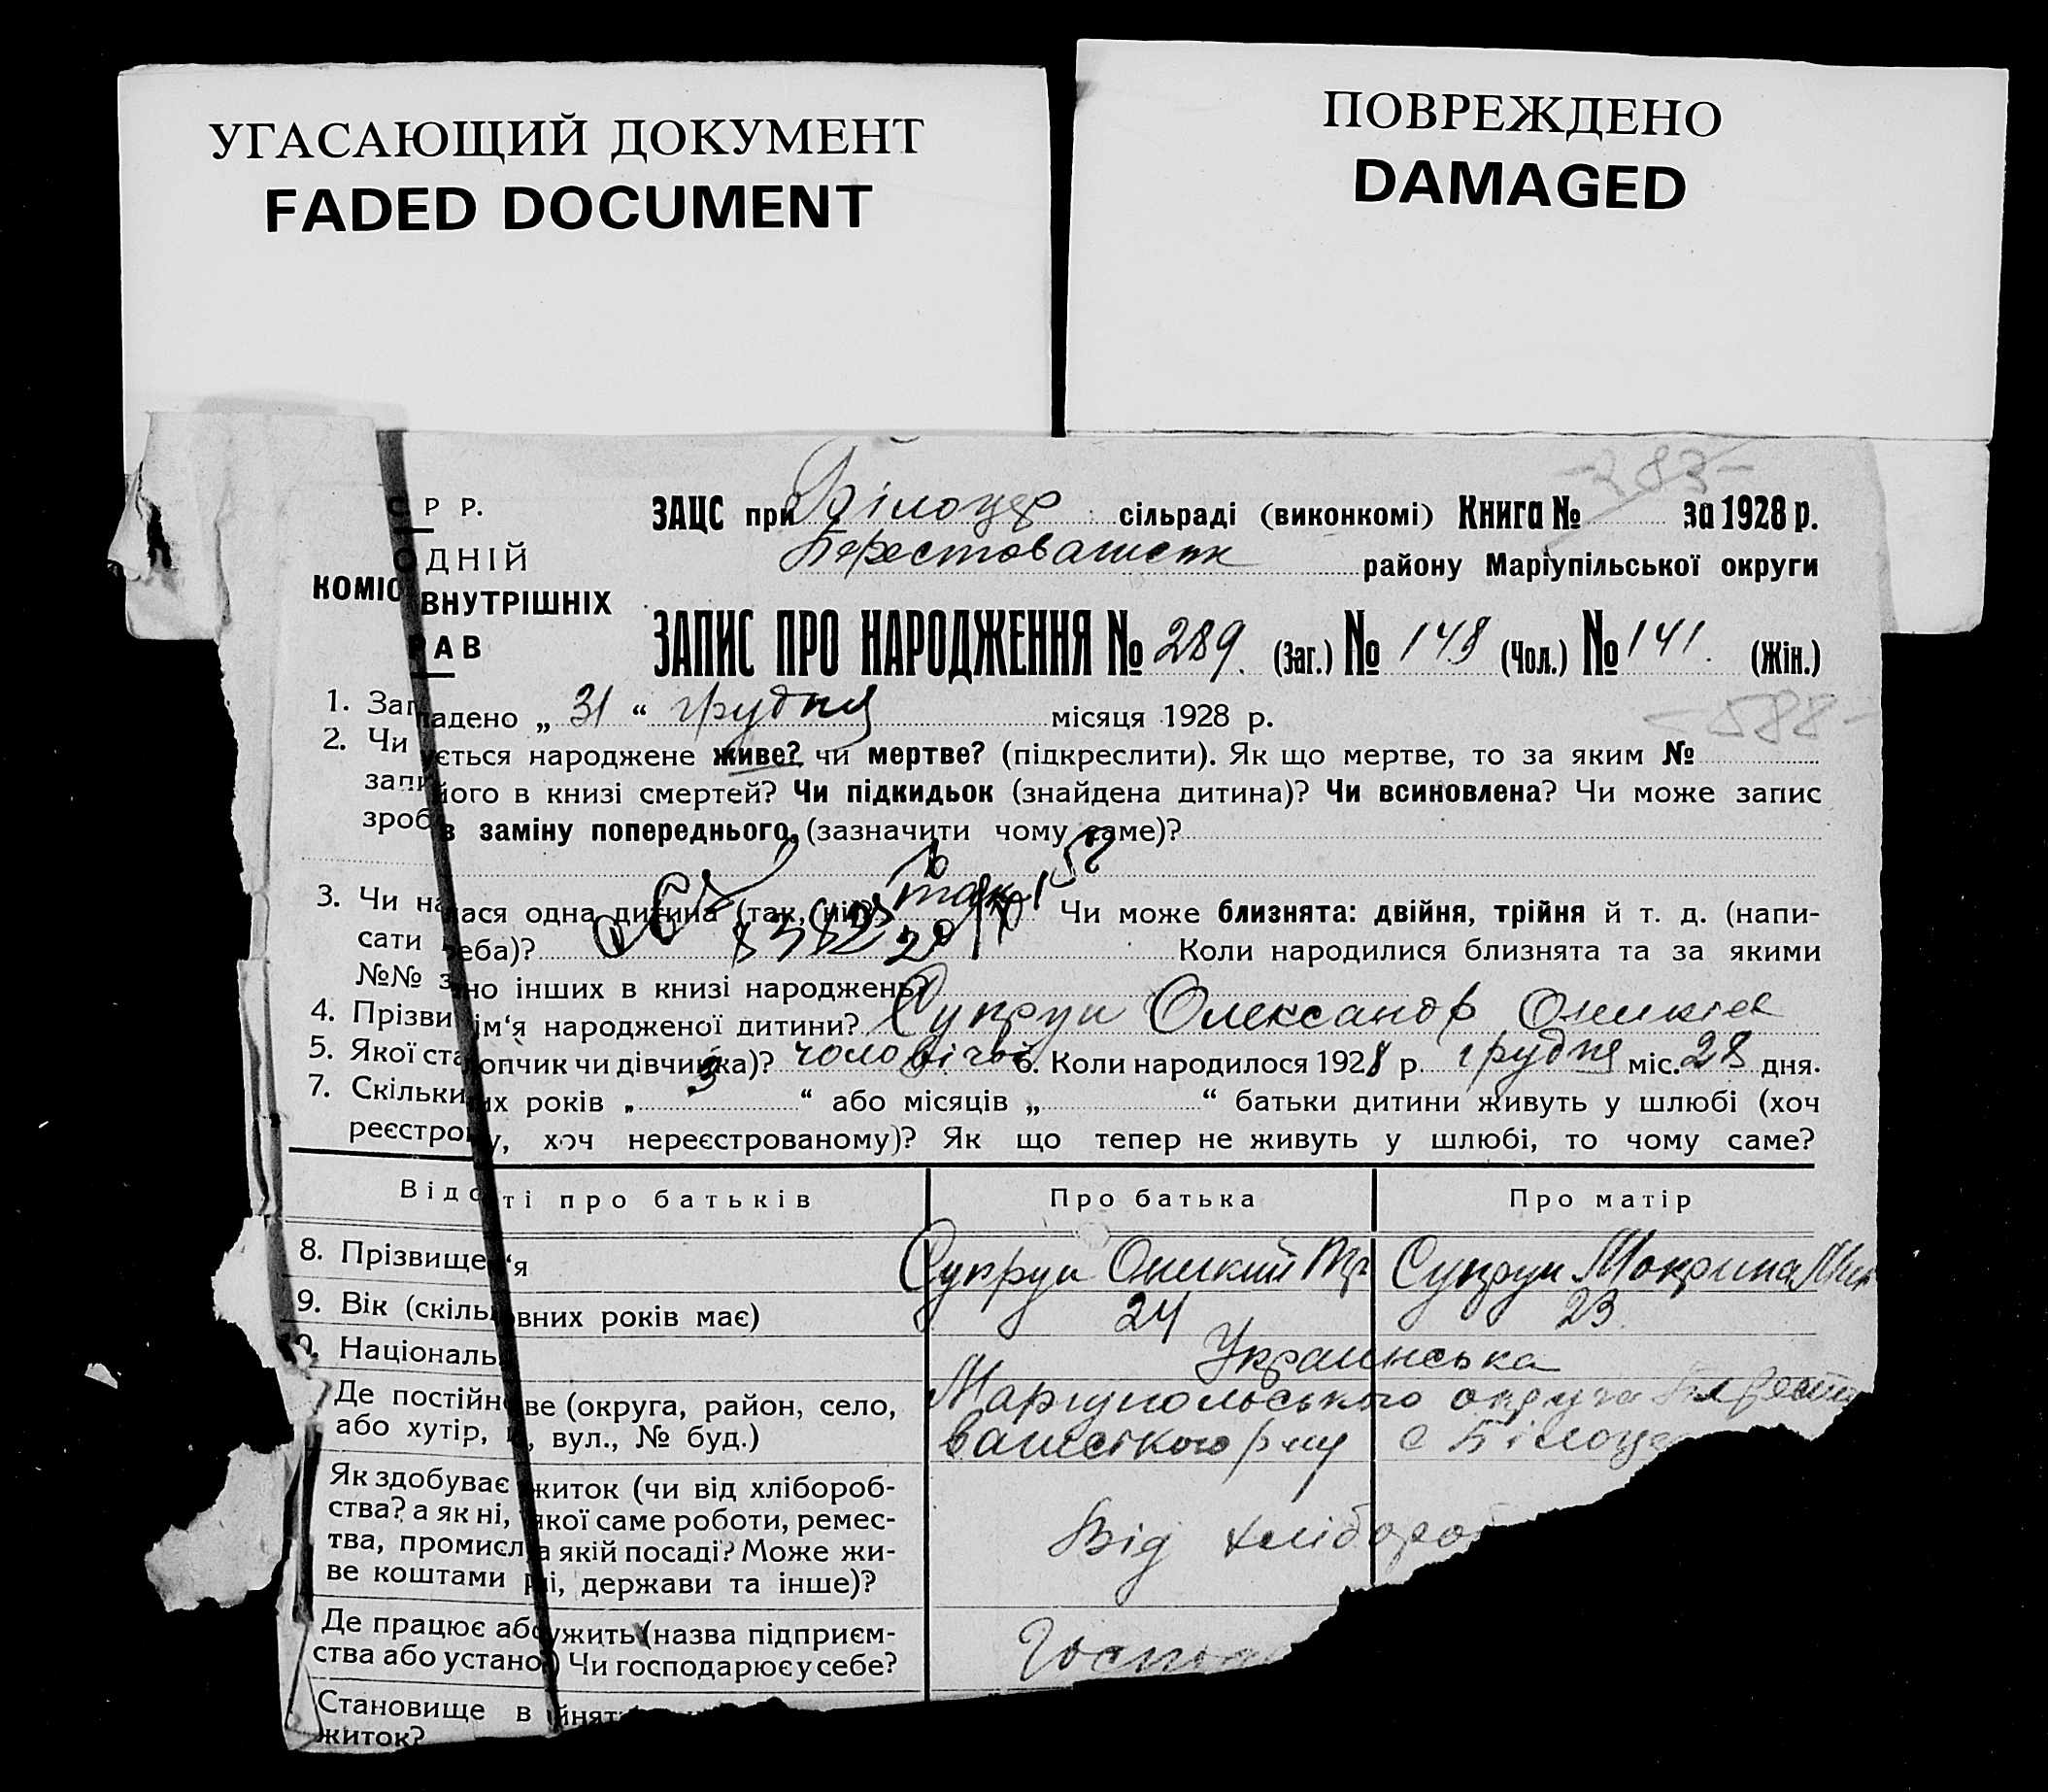 УГАСАЮЩИЙ ДОКУМЕНТ
FADED DOCUMENT
ПОВРЕЖДЕНО
DAMAGED
С Р Р.
ОДНІЙ
КОМІС ВНУТРІШНІХ
РАВ
ЗАЦС при Білоцер сільраді (виконкомі) Книга № за 1928 р.
району Маріупільської округи
ЗАПИС ПРО НАРОДЖЕННЯ № 289. (Заг.) № 148 (Чол.) № 141. (Жін.)
- 588 -
1. Заг ладено „ 31 “ грудня місяця 1928 р.
2. Чи ується народжене живе? чи мертве? (підкреслити). Як що мертве, то за яким №
запи його в книзі смертей? Чи підкидьок (знайдена дитина)? Чи всиновлена? Чи може запис
зроб в заміну попереднього, (зазначити чому саме)?
3. Чи на лася одна дитина (так, ні)? так Чи може близнята: двійня, трійня й т. д. (напи-
сати реба)? Коли народилися близнята та за якими
№№ з но інших в книзі народжень?
4. Прізви ім‘я народженої дитини? Супрун Олександр
5. Якої ста опчик чи дівчинка)? чоловічої 6. Коли народилося 1928 р. грудня міс. 28 дня.
7. Скільки их років „ 3 “ або місяців „ “ батьки дитини живуть у шлюбі (хоч
реєстро у, хоч нереєстрованому)? Як що тепер не живуть у шлюбі, то чому саме?
Відо ті про батьків Про батька Про матір
8. Прізвище ‘я Супрун Оникий Супрун Мокрина
9. Вік (скіль овних років має) 24 23.
0. Національ Украинська
Де постійн ве (округа, район, село, Маріупольського округа
або хутір, , вул., № буд.) с Білоце
Як здобуває житок (чи від хлібороб-
ства? а як ні, якої саме роботи, ремес-
тва, промисл а якій посаді? Може жи- Від хлібороб
ве коштами і, держави та інше)?
Де працює або ужить (назва підприєм-
ства або устано ) Чи господарює у себе? Госпо
Становище в йнят
житок?